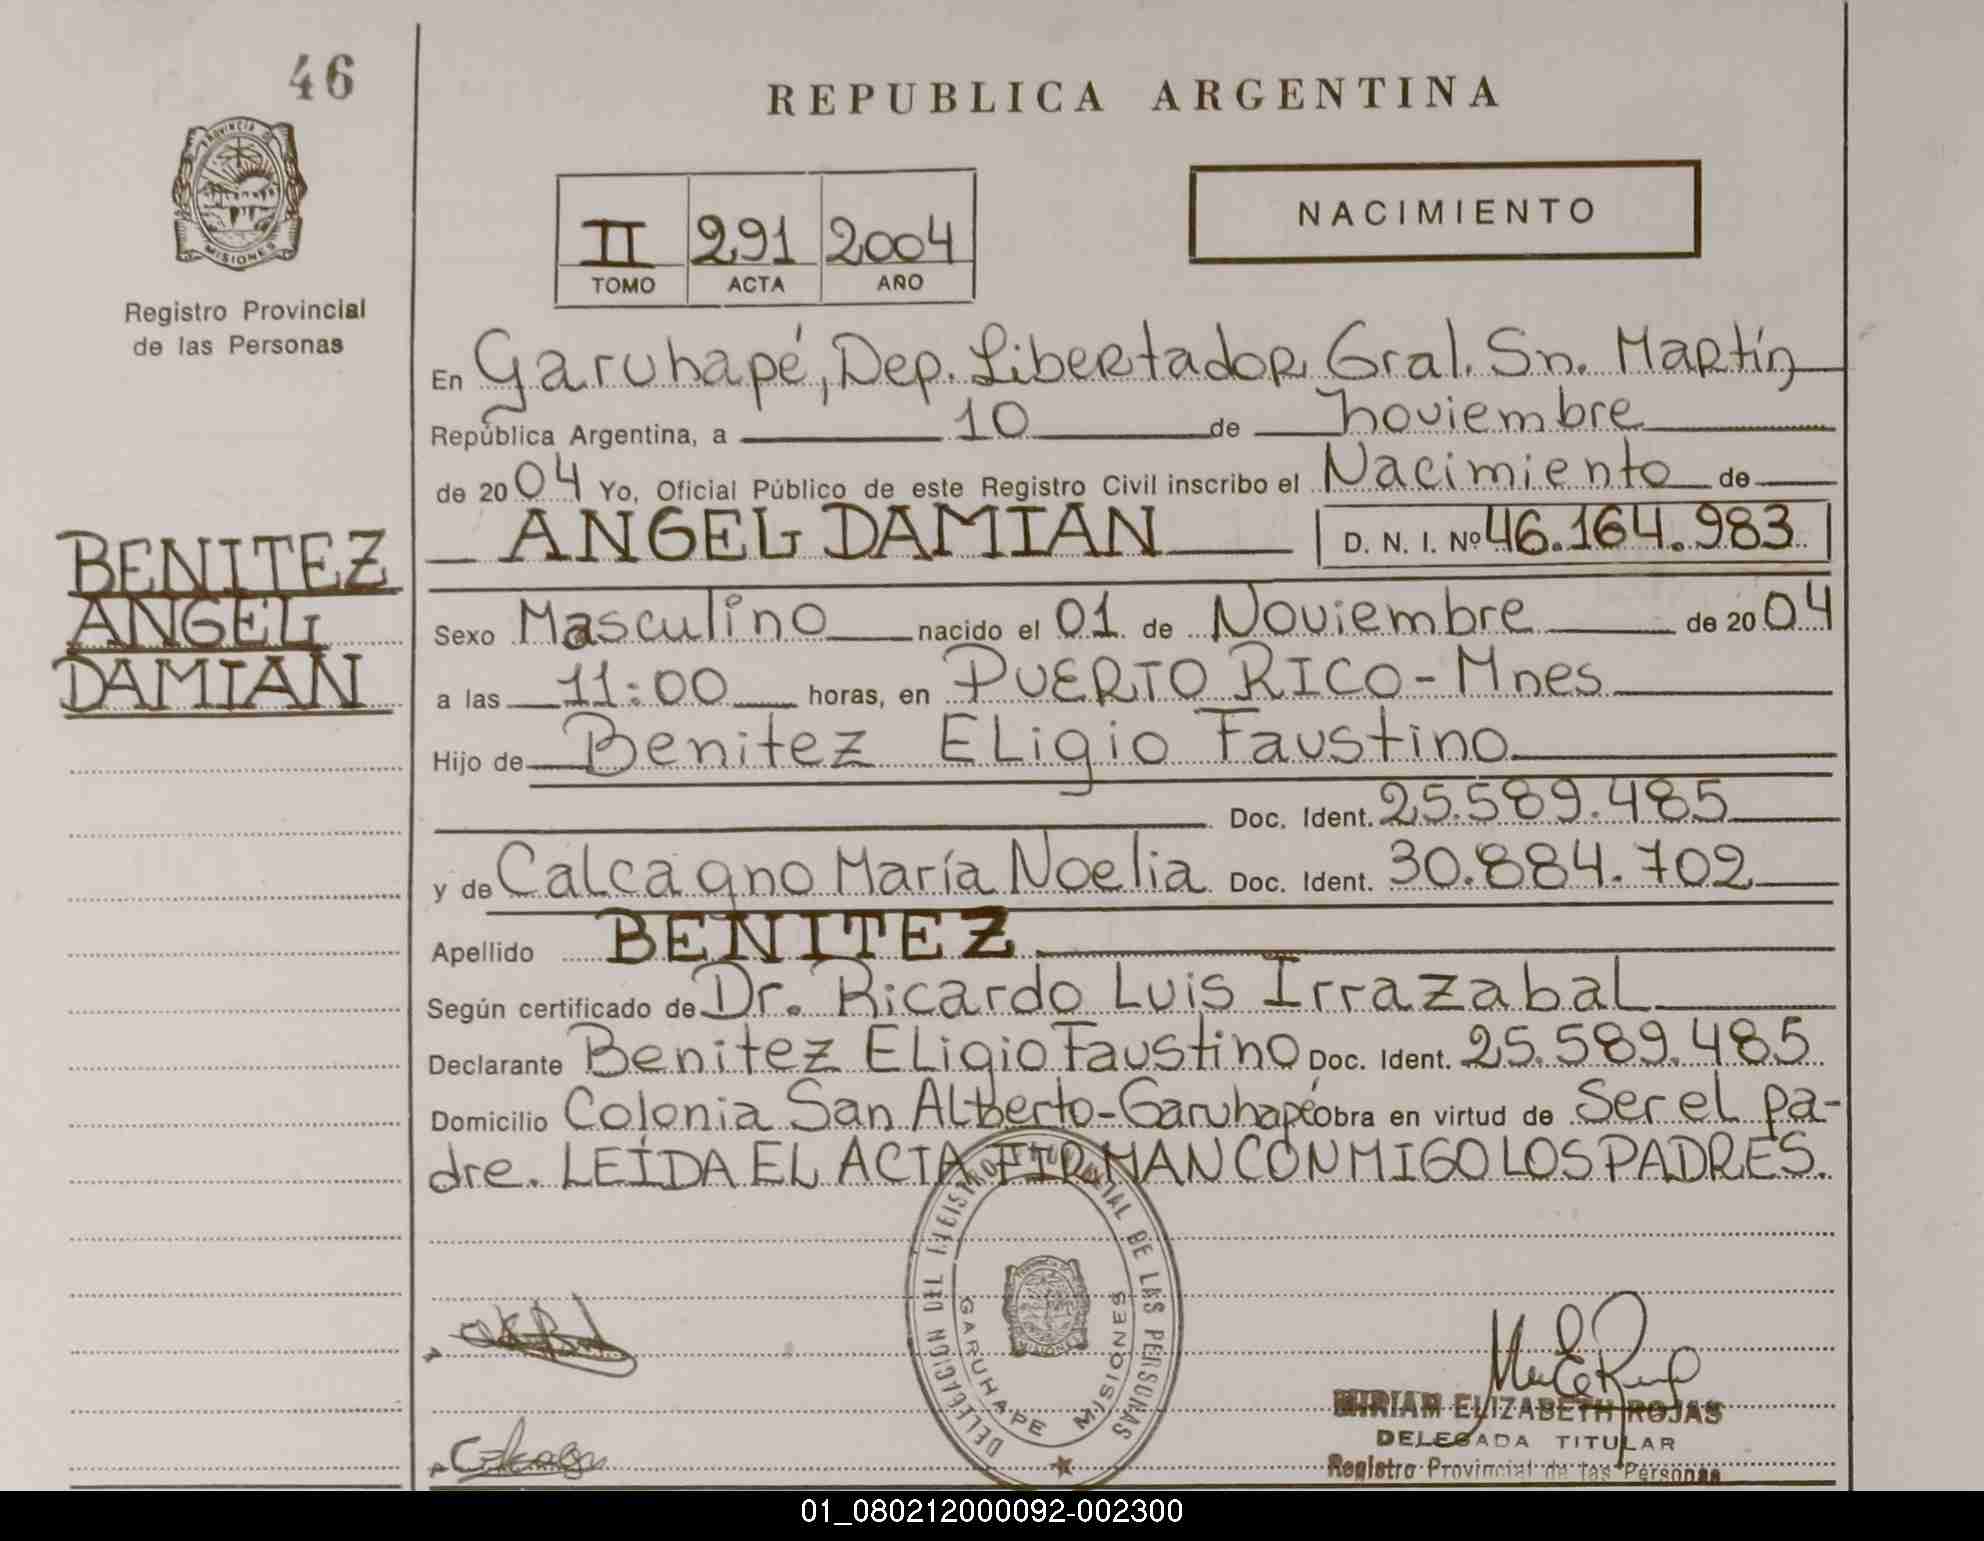 46
PROVINCIA DE
MISIONES
Registro Provincial
de las Personas
REPUBLICA ARGENTINA
II 291 2004
TOMO ACTA AÑO
NACIMIENTO
En Garuhapé, Dep. Libertador Gral. Sn. Martín
República Argentina, a 10 de noviembre
de 2004 Yo, Oficial Público de este Registro Civil inscribo el Nacimiento de
ANGEL DAMIAN D. N. I. Nº 46.164.983
BENITEZ
ANGEL
DAMIAN
Sexo Masculino nacido el 01 de Noviembre de 2004
a las 11:00 horas, en PUERTO RICO - Mnes
Hijo de Benitez Eligio Faustino
Doc. Ident. 25.589.485
y de Calcagno María Noelia Doc. Ident. 30.884.702
Apellido BENITEZ
Según certificado de Dr. Ricardo Luis Irrazabal
Declarante Benitez Eligio Faustino Doc. Ident. 25.589.485
Domicilio Colonia San Alberto - Garuhapé obra en virtud de Ser el pa-
dre. LEÍDA EL ACTA FIRMAN CONMIGO LOS PADRES.
DELEGACION DEL REGISTRO PROVINCIAL DE LAS PERSONAS
GARUHAPE MISIONES
MIRIAM ELIZABETH ROJAS
DELEGADA TITULAR
Registro Provincial de las Personas
01_080212000092-002300